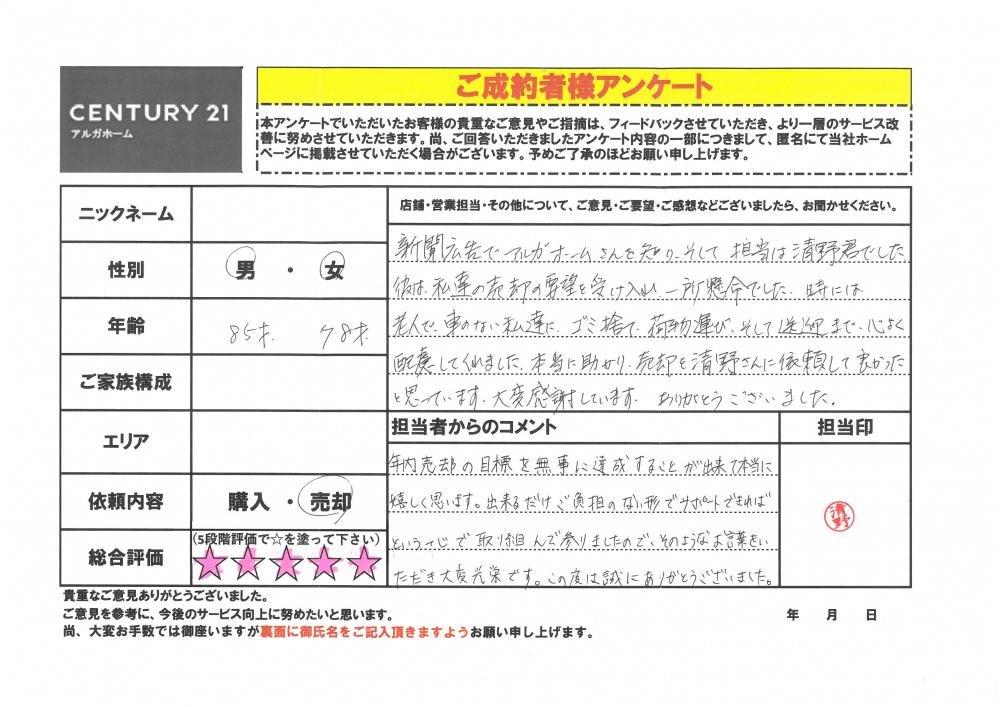 CENTURY 21
アルガホーム
ご成約者様アンケート
本アンケートでいただいたお客様の貴重なご意見やご指摘は、フィードバックさせていただき、より一層のサービス改
善に努めさせていただきます。尚、ご回答いただきましたアンケート内容の一部につきまして、匿名にて当社ホーム
ページに掲載させていただく場合がございます。予めご了承のほどお願い申し上げます。
ニックネーム
性別
男 ・ 女
年齢
85才. 78才.
ご家族構成
エリア
依頼内容
購入 ・ 売却
総合評価
(5段階評価で☆を塗って下さい)
店舗・営業担当・その他について、ご意見・ご要望・ご感想などございましたら、お聞かせください。
新聞広告でアルガホームさんを知り、そして担当は清野君でした
彼は、私達の売却の要望を受け入れ、一所懸命でした。時には
老人で、車のない私達に、ゴミ捨て、荷物運び、そして送迎まで、心よく
配慮してくれました。本当に助かり、売却を清野さんに依頼して良かった
と思っています。大変感謝しています。ありがとうございました。
担当者からのコメント
担当印
年内売却の目標を無事に達成することが出来て本当に
嬉しく思います。出来るだけご負担のない形でサポートできれば
という一心で取り組んで参りましたので、そのようなお言葉をい
ただき大変光栄です。この度は誠にありがとうございました。
清野
貴重なご意見ありがとうございました。
ご意見を参考に、今後のサービス向上に努めたいと思います。
尚、大変お手数では御座いますが裏面に御氏名をご記入頂きますようお願い申し上げます。
年 月 日